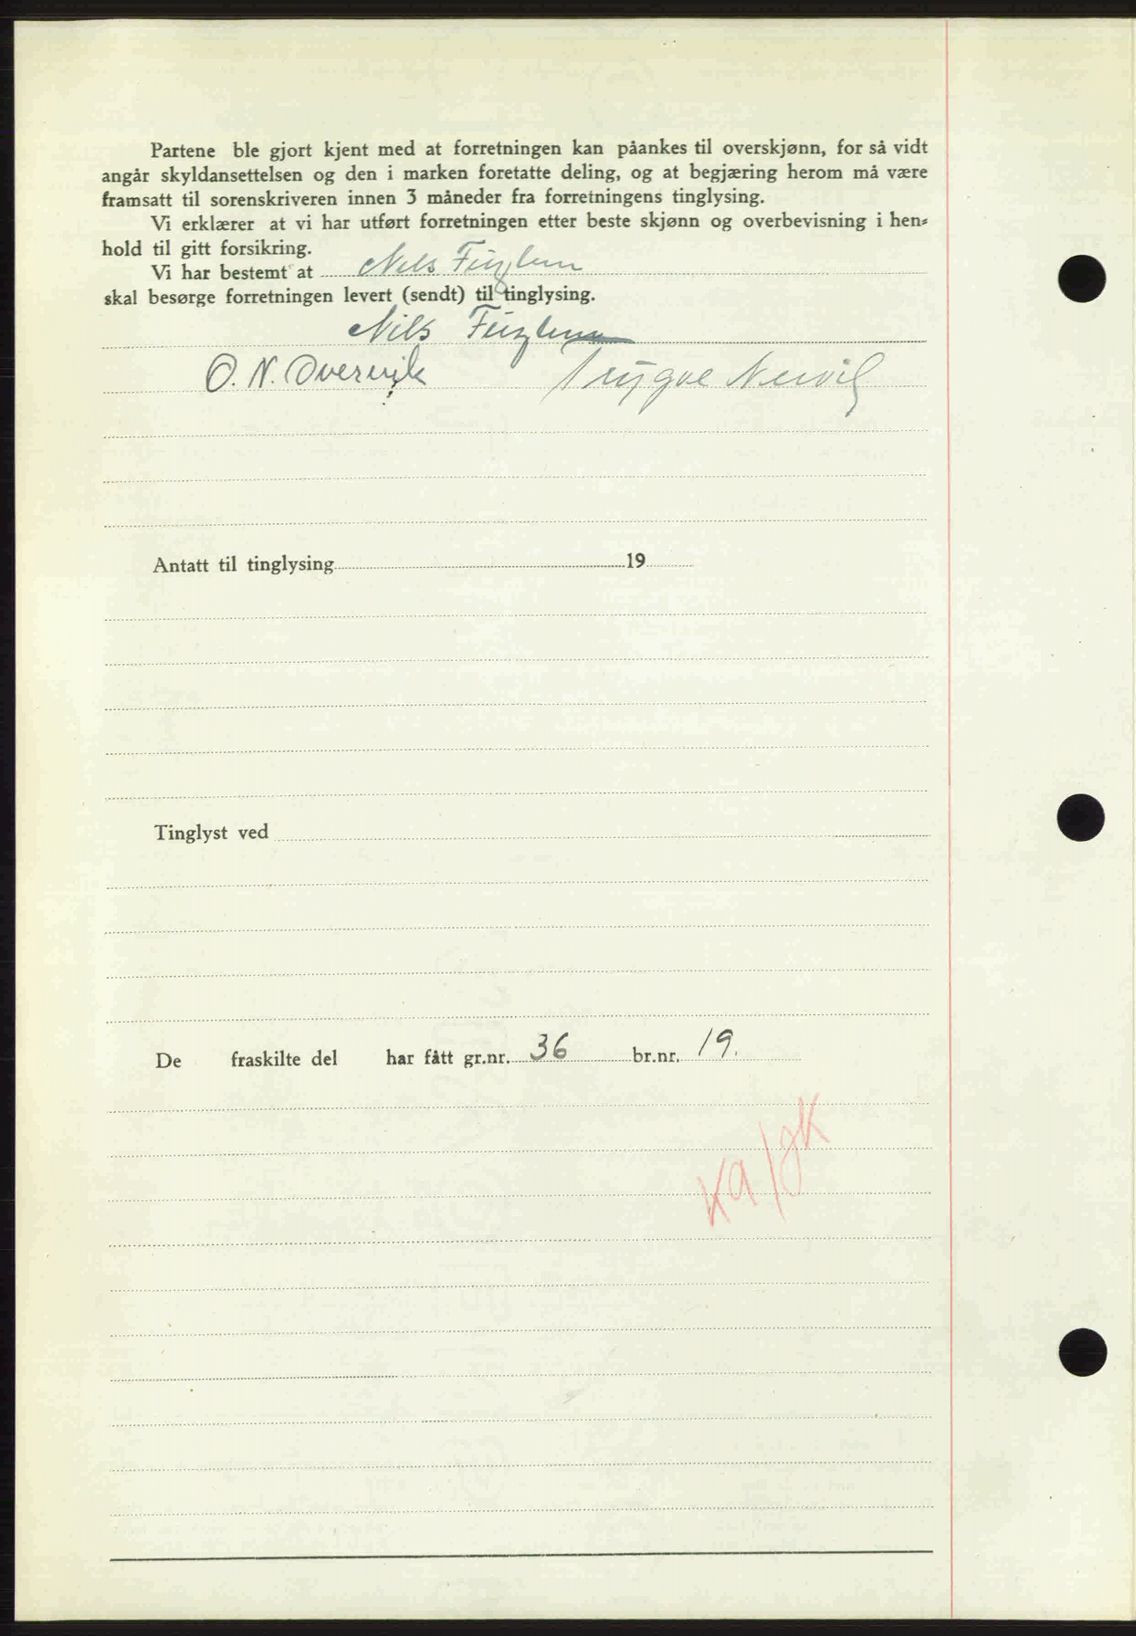 Partene ble gjort kjent med at forretningen kan påankes til overskjønn, for så vidt
angår skyldansettelsen og den i marken foretatte deling, og at begjæring herom må være
framsatt til sorenskriveren innen 3 måneder fra forretningens tinglysing.
Vi erklærer at vi har utført forretningen etter beste skjønn og overbevisning i hen-
hold til gitt forsikring.
Vi har bestemt at Nils
skal besørge forretningen levert (sendt) til tinglysing.
Nils
O. N. Overvik Trygve
Antatt til tinglysing 19
Tinglyst ved
De fraskilte del har fått gr.nr. 36 br.nr. 19.